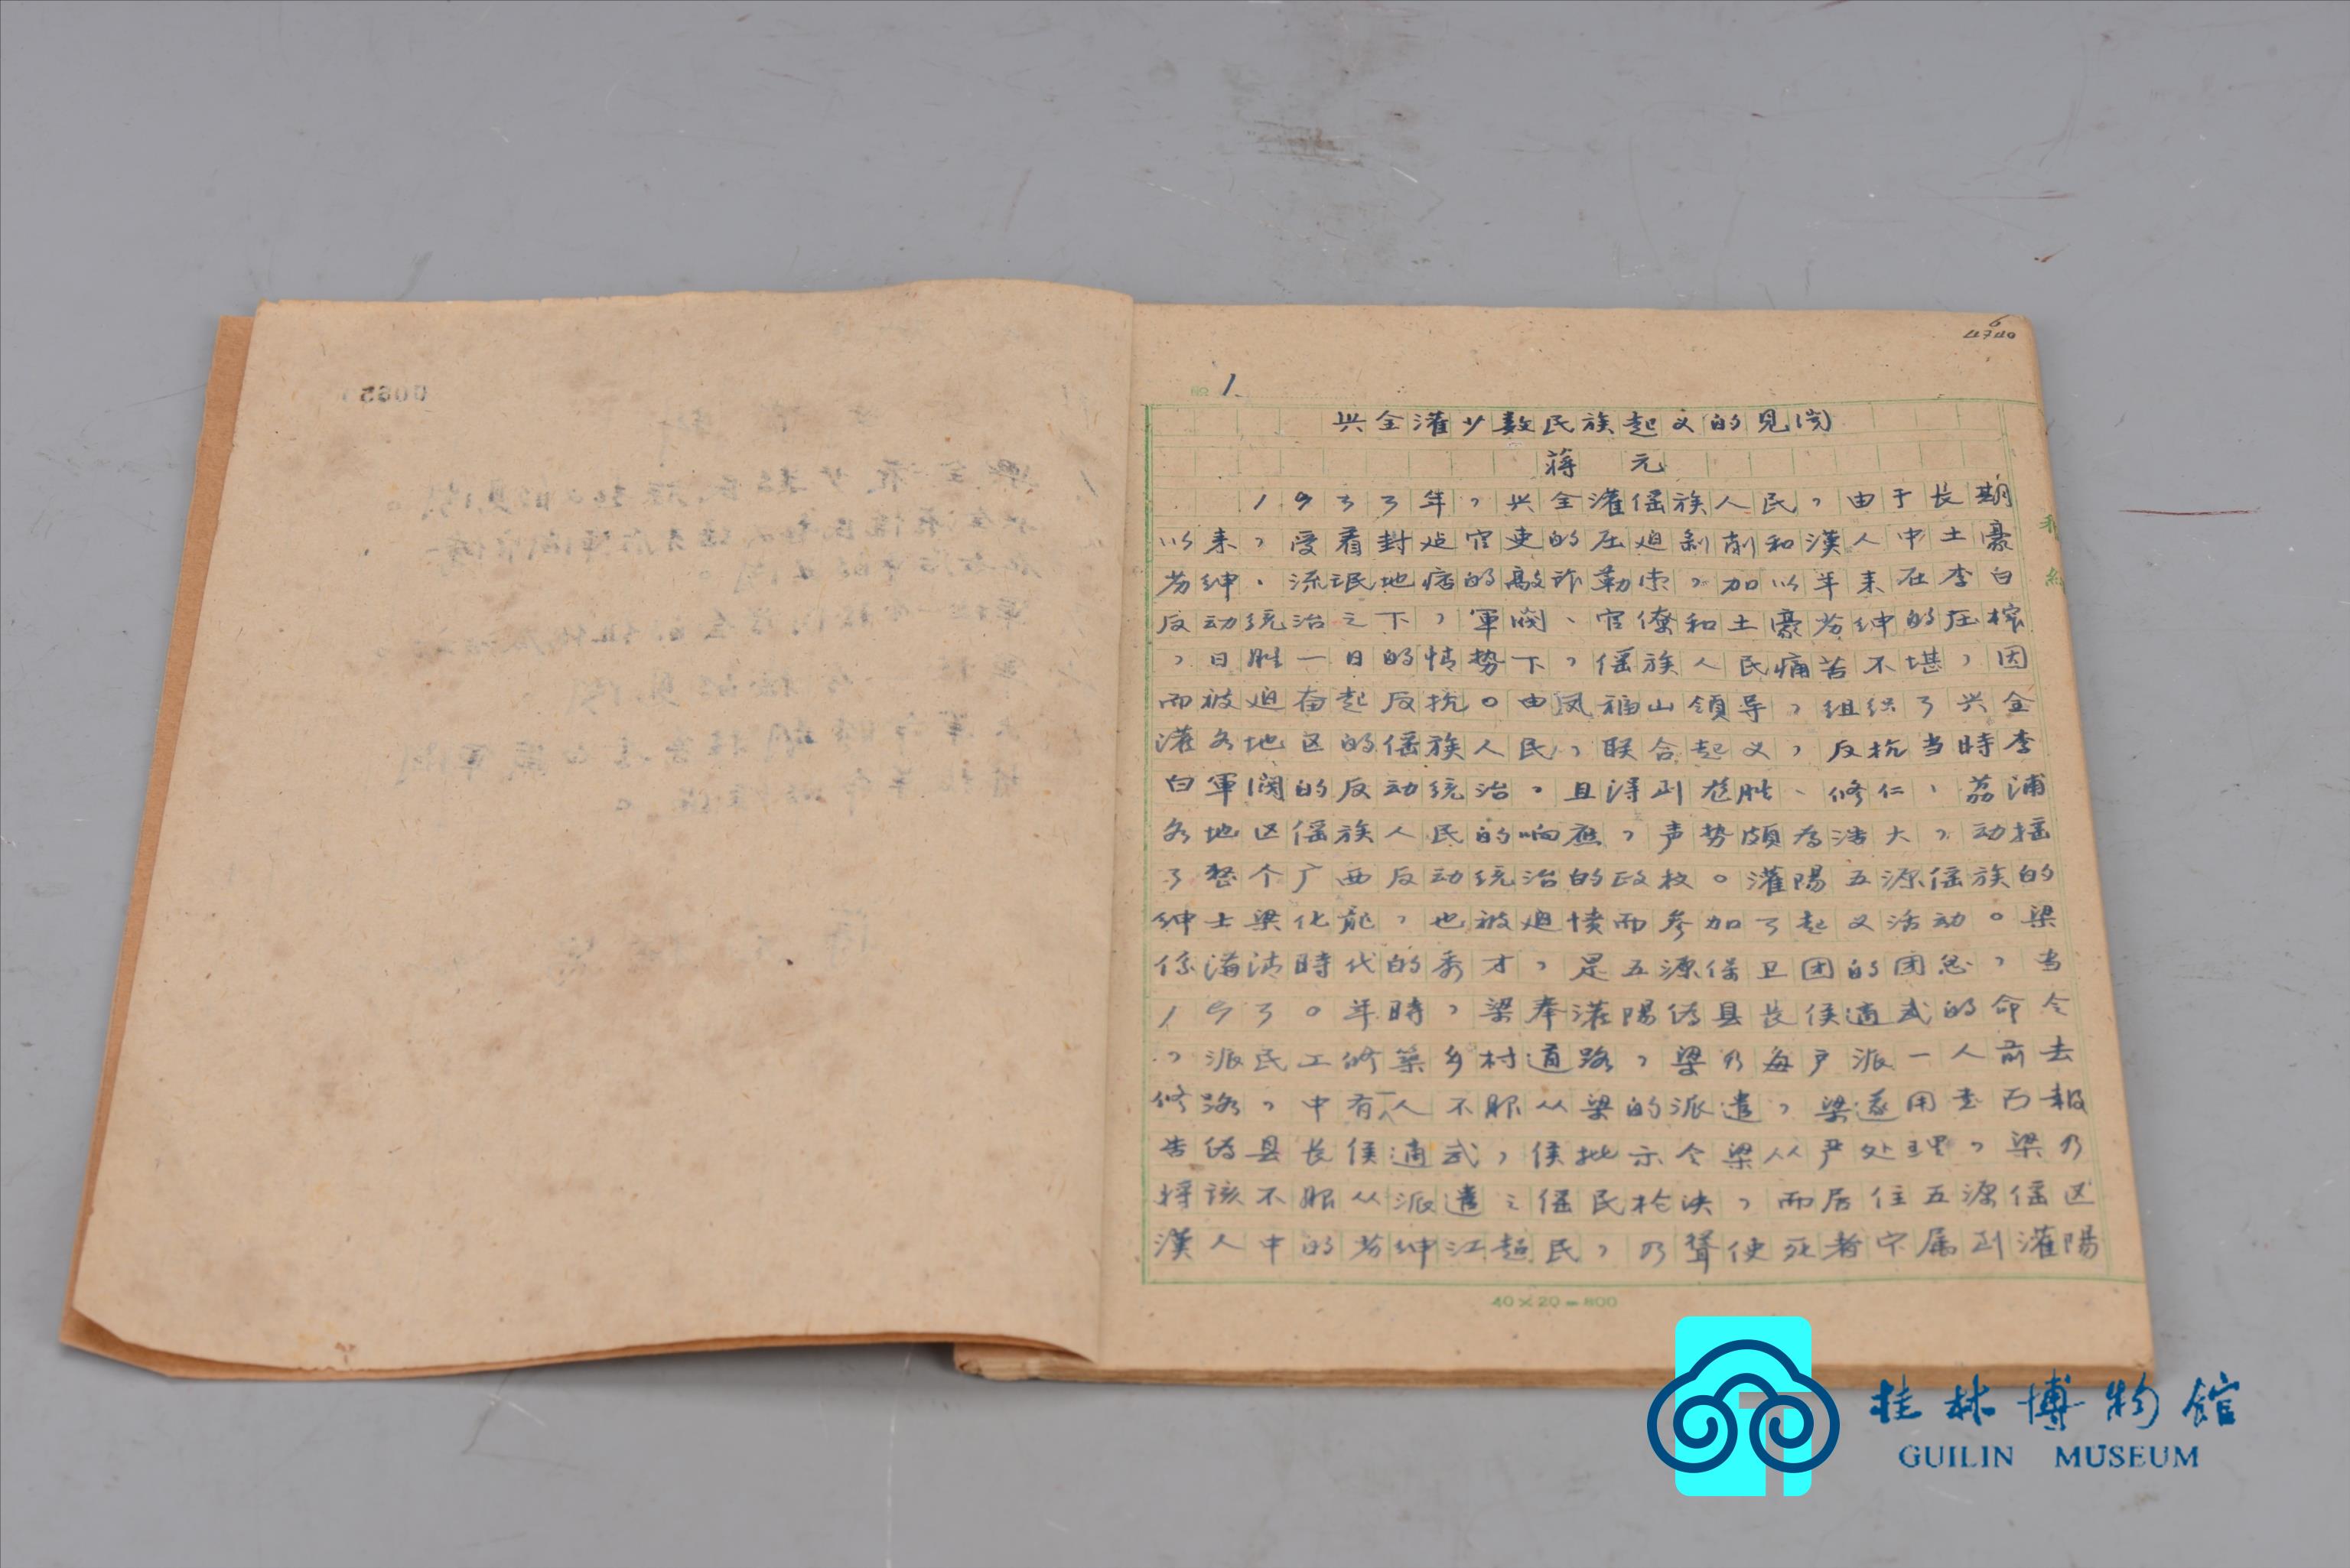 6
4740
1.
兴全灌少数民族起义的见闻
蒋 元
1933年，兴全灌傜族人民，由于长期
以来，受着封建官吏的压迫剥削和漢人中土豪
劣绅、流氓地痞的敲诈勒索，加以年来在李白
反动统治之下，軍阀、官僚和土豪劣绅的压榨
，日胜一日的情势下，傜族人民痛苦不堪，因
而被迫奋起反抗。由凤福山領导，组织了兴全
灌各地区的傜族人民，联合起义，反抗当時李
白軍阀的反动统治，且得到恭城、修仁、荔浦
各地区傜族人民的响应，声势頗为浩大，动摇
了整个广西反动统治的政权。灌陽五源傜族的
绅士梁化龍，也被迫愤而参加了起义活动。梁
係满清時代的秀才，是五源保卫团的团总，当
1930年時，梁奉灌陽伪县長侯適武的命令
，派民工修築乡村道路，梁乃每户派一人前去
修路，中有一人不服从梁的派遣，梁遂用书面報
告伪县長侯適武，侯批示令梁从严处理，梁乃
将该不服从派遣之傜民枪决，而居住五源傜区
漢人中的劣绅江超民，乃聳使死者家属到灌陽
40×20=800
桂林博物館
GUILIN MUSEUM